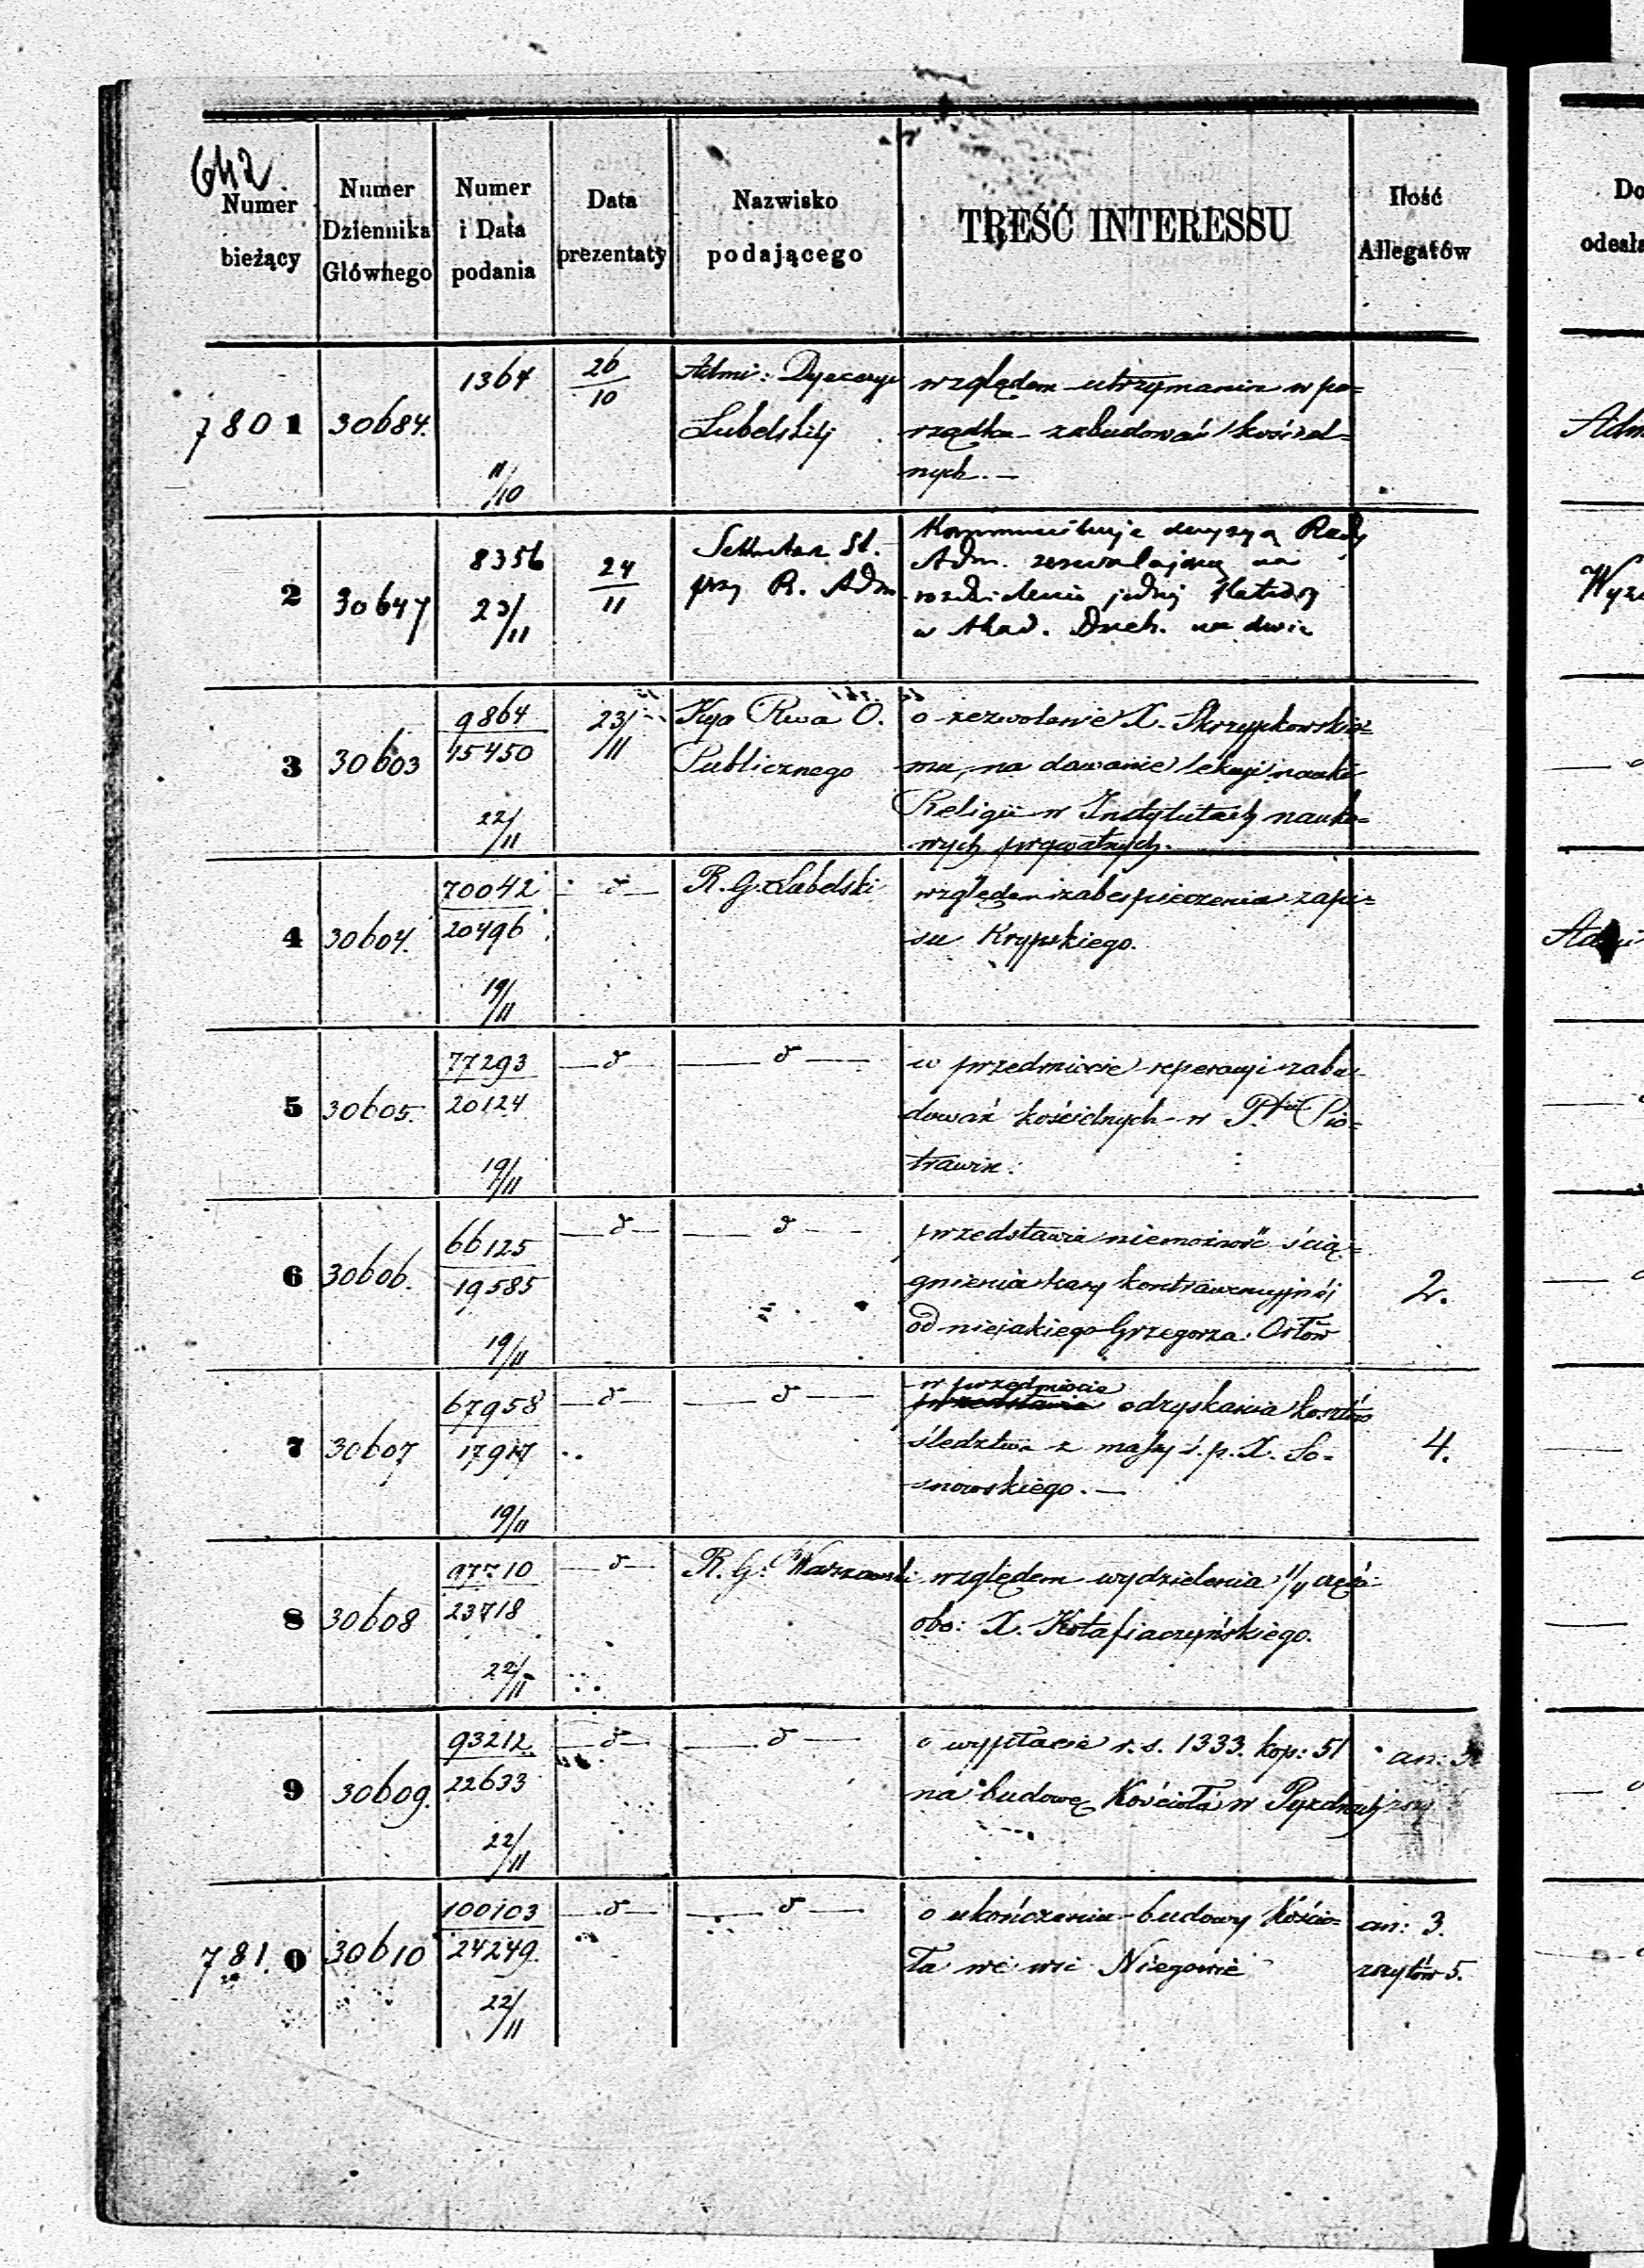 642.
Numer bieżący
Numer Dziennika Głównego
Numer i Data podania
Data prezentaty
Nazwisko podającego
TREŚĆ INTERESSU
Ilość Allegatów
Do
odesła
7801 30684. 1364 11/10 26/10
Admi: Dyecezyi
Lubelskiej
względem utrzymania w po=
rządku zabudowań kościel=
nych.—
Adm
2 30647 8356 23/11 24/11
Sekretarz St.
przy R. Adm.
Kommunikuje decyzyą Rady
Adm. zezwalającą na
rozdzielenie jednej Katedry
w Akad. Duch. na dwie
3 30603 9864/15450 22/11 23/11
Kya Rwa O.
Publicznego
o zezwolenie X. Skrzypkowskie=
mu, na dawanie lekcyi nauki
Religii w Instytutach nauko=
wych prywatnych.
4 30604. 70042/20496 19/11 —d—
R. G. Lubelski
względem zabezpieczenia zapi=
su Krypskiego.
5 30605. 77293/20124 19/11 —d— —d—
w przedmiocie reperacyi zabu=
dowań kościelnych w Pio=
trawin.
6 30606. 66125/19585 19/11 —d— —d—
przedstawia niemożność ścią=
gnienia kary kontrawencyjnéj
od niejakiego Grzegorza Orłów
2.
7 30607 67958/17917 19/11 —d— —d—
w przedmiocie
przedstawia odzyskania kosztów
śledztwa z massy ś. p. X. So=
snowskiego.—
4.
8 30608 97710/23718 22/11 —d—
R. G. Warszawski
względem wydzielenia 1/4 części
obo: X.
9 30609. 93212/22633 22/11 —d— —d—
o wypłacie r. s. 1333. kop: 51
na budowę Kościoła w Pyzdrach
an: 3
7810 30610 100103/24249. 22/11 —d— —d—
o ukończenie budowy Kościo=
ła we wsi Niegowie
an: 3.
zszytów 5.